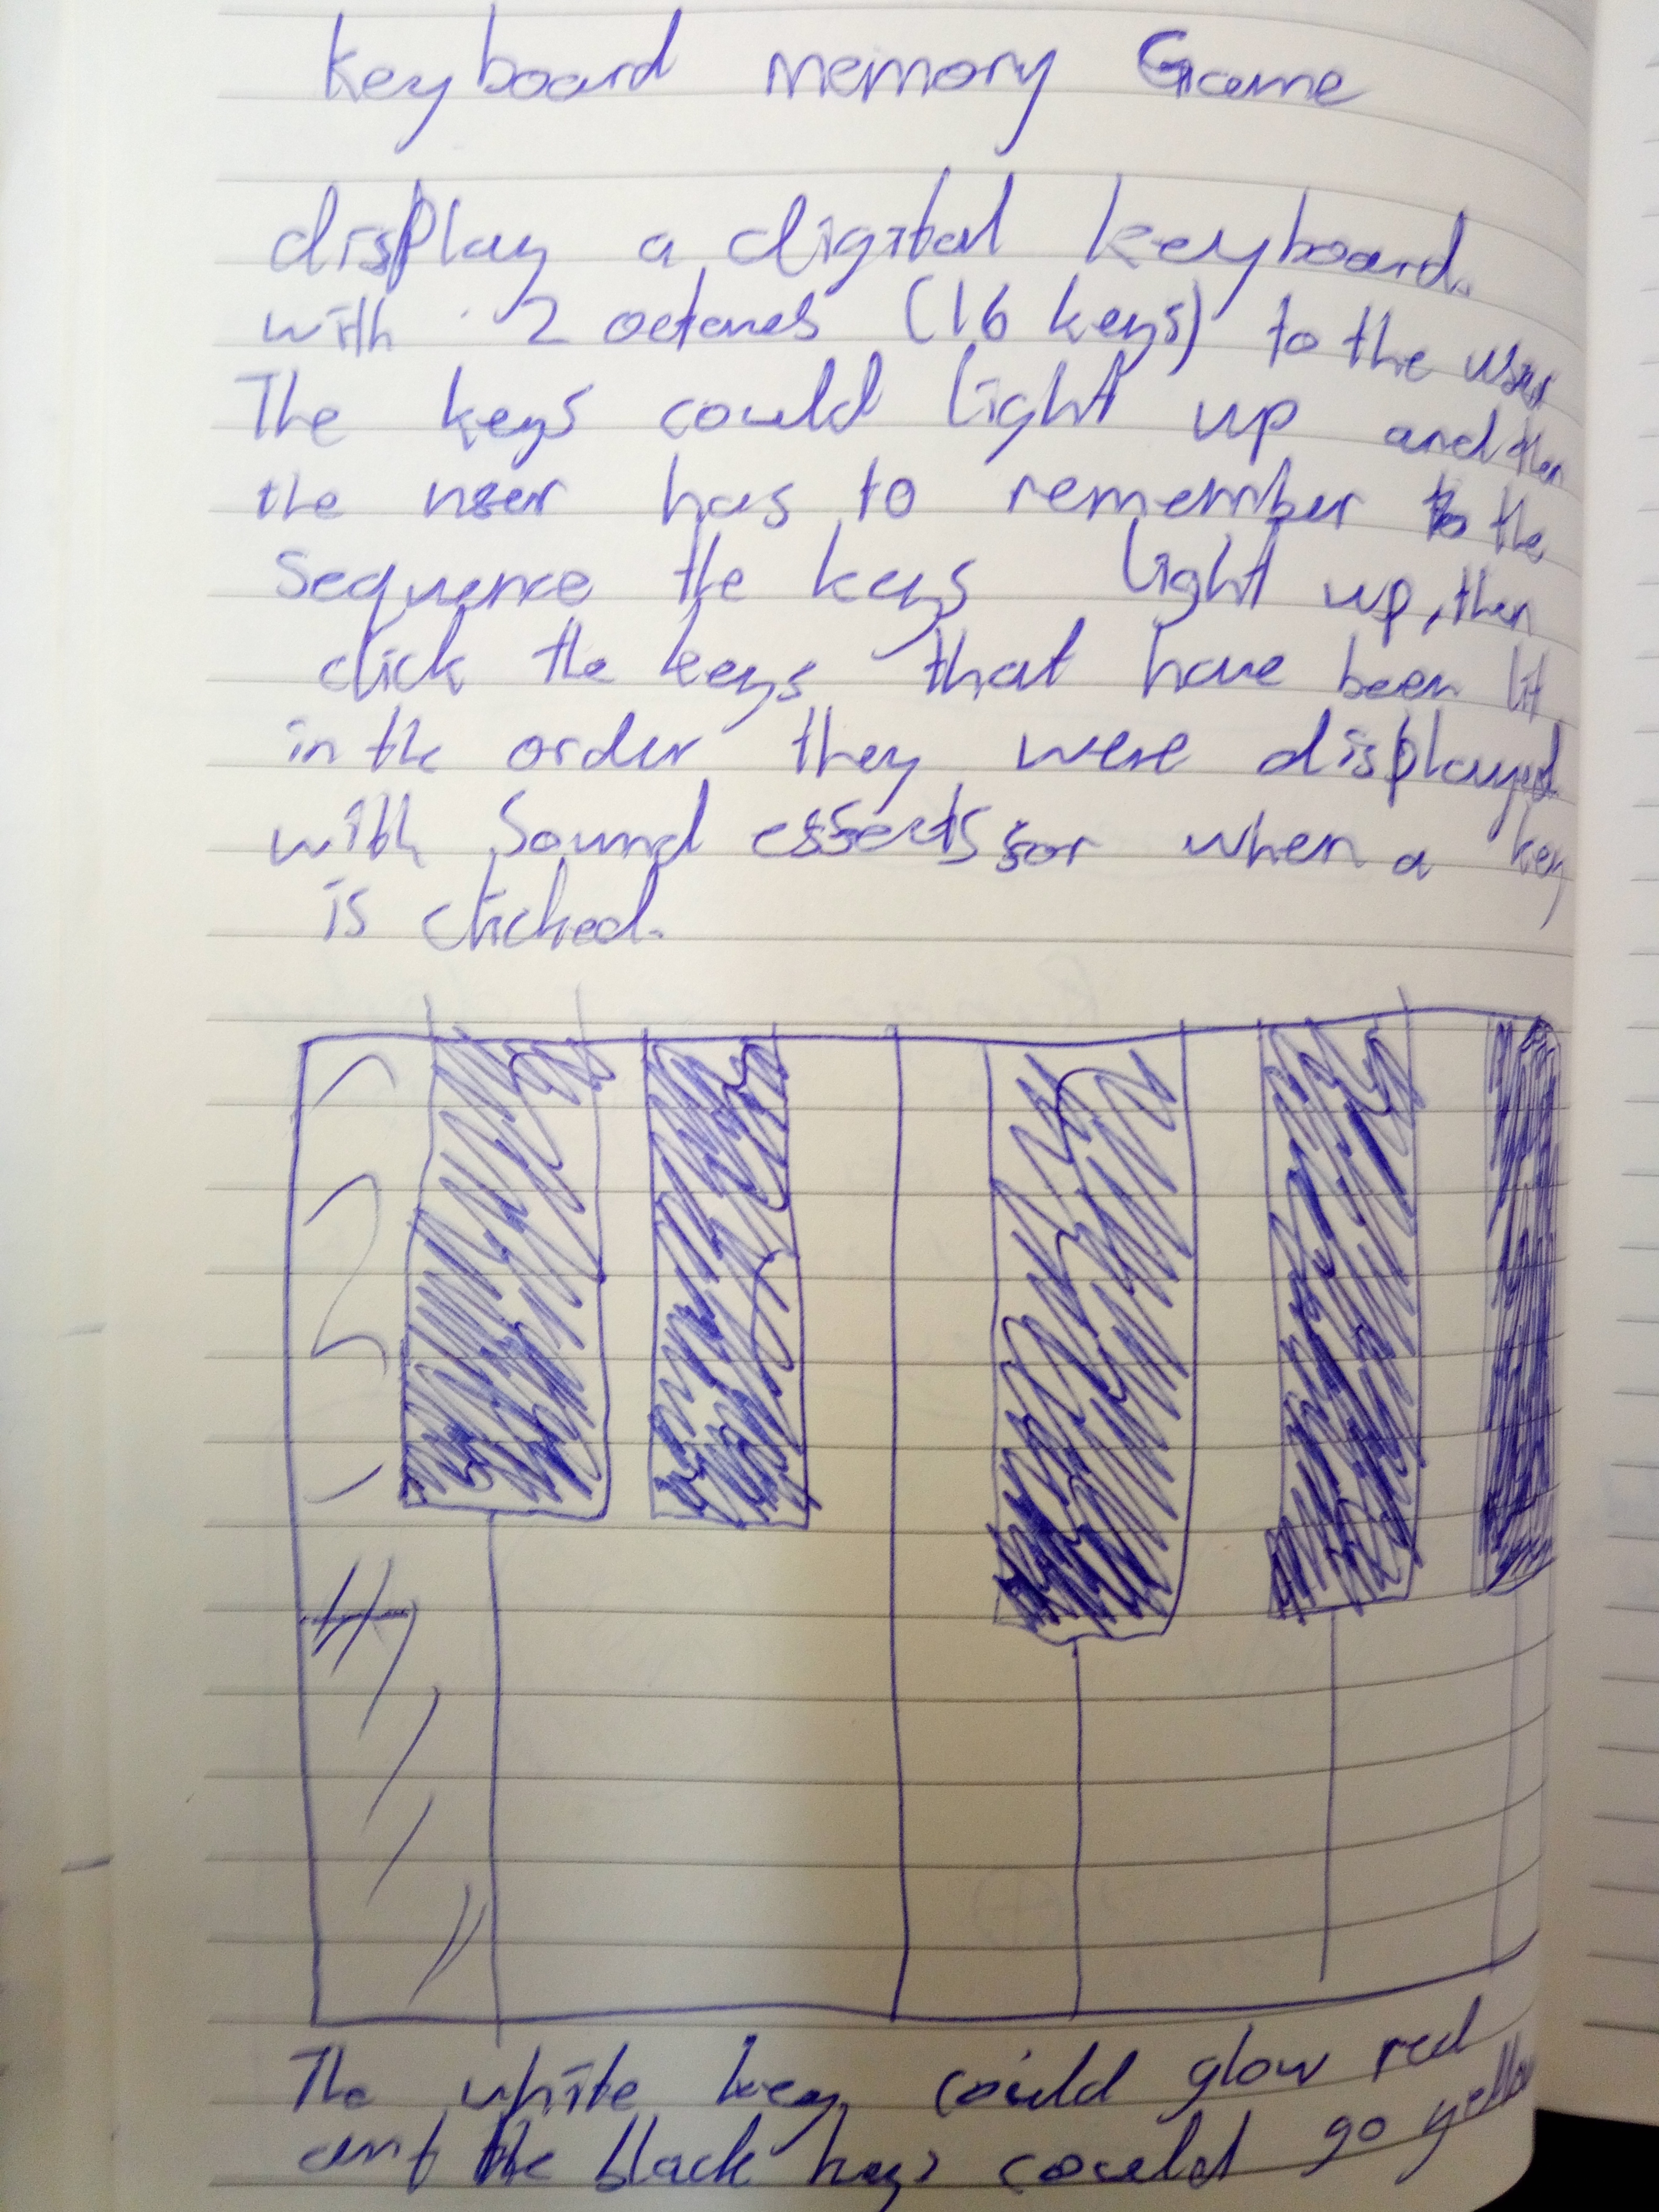 keyboard memory Game
display a digital keyboard.
with 2 octaves (16 keys) to the user
The keys could light up and then
the user has to remember to the
sequence the keys light up, then
click the keys that have been lit
in the order they were displayed
with sound effects for when a key
is clicked.
The white keys could glow red
and the black keys could go yellow